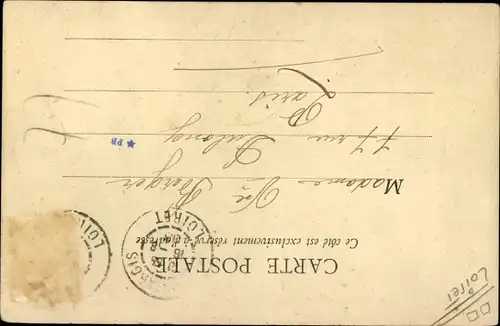 CARTE POSTALE
Ce côté est exclusivement réservé à l'adresse
Madame Vve Berger
77 rue Dulong
Paris.
★ PB
LOIRET
LOI
Loiret